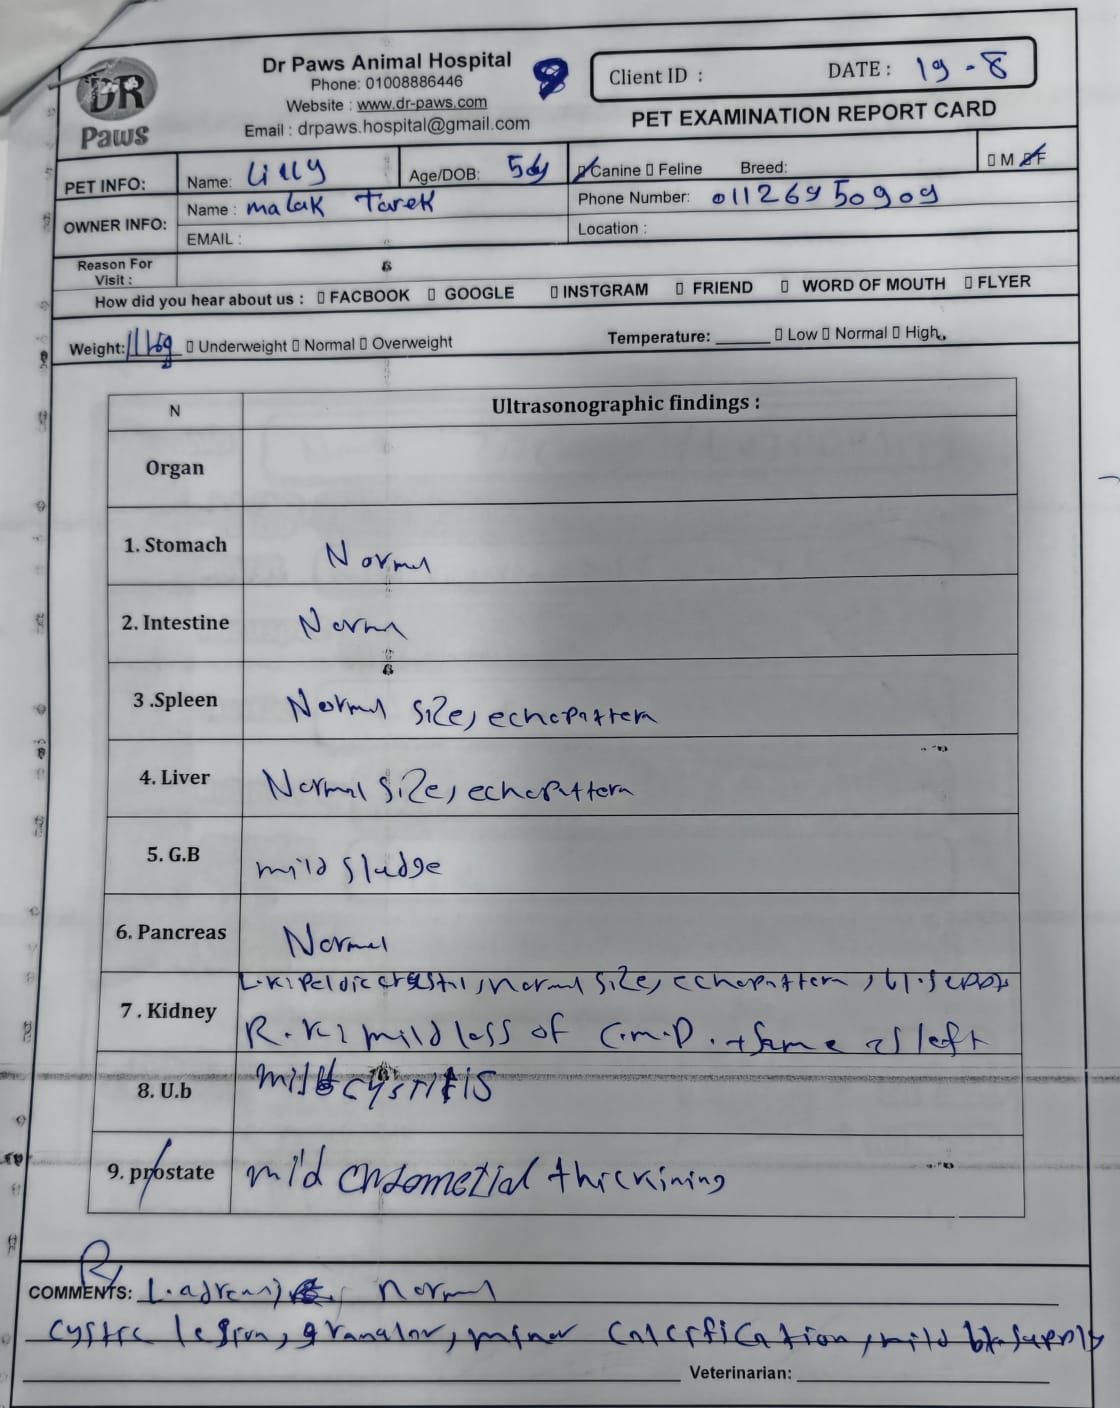 DR
Paws
Dr Paws Animal Hospital
Phone: 01008886446
Website : www.dr-paws.com
Email : drpaws.hospital@gmail.com
8
Client ID :
DATE : 19 - 8
PET EXAMINATION REPORT CARD
PET INFO:
Name: Lilly
Age/DOB:
Canine Feline
Breed:
M F
OWNER INFO:
Name : malak Tarek
Phone Number: 01126950909
EMAIL :
Location :
Reason For
Visit :
How did you hear about us : FACBOOK GOOGLE INSTGRAM FRIEND WORD OF MOUTH FLYER
Weight: 11 kg Underweight Normal Overweight
Temperature: Low Normal High
N
Ultrasonographic findings :
Organ
1. Stomach
Normal
2. Intestine
Normal
3 .Spleen
Normal size, echopattern
4. Liver
Normal size, echopattern
5. G.B
mild sludge
6. Pancreas
Normal
7 . Kidney
L.K: normal size, echopattern,
R.K: mild loss of C.M.D. + same as left
8. U.b
mild cystitis
9. prostate
mild thickining
COMMENTS: L. normal
cystic lesion, granular, minor mild
Veterinarian: